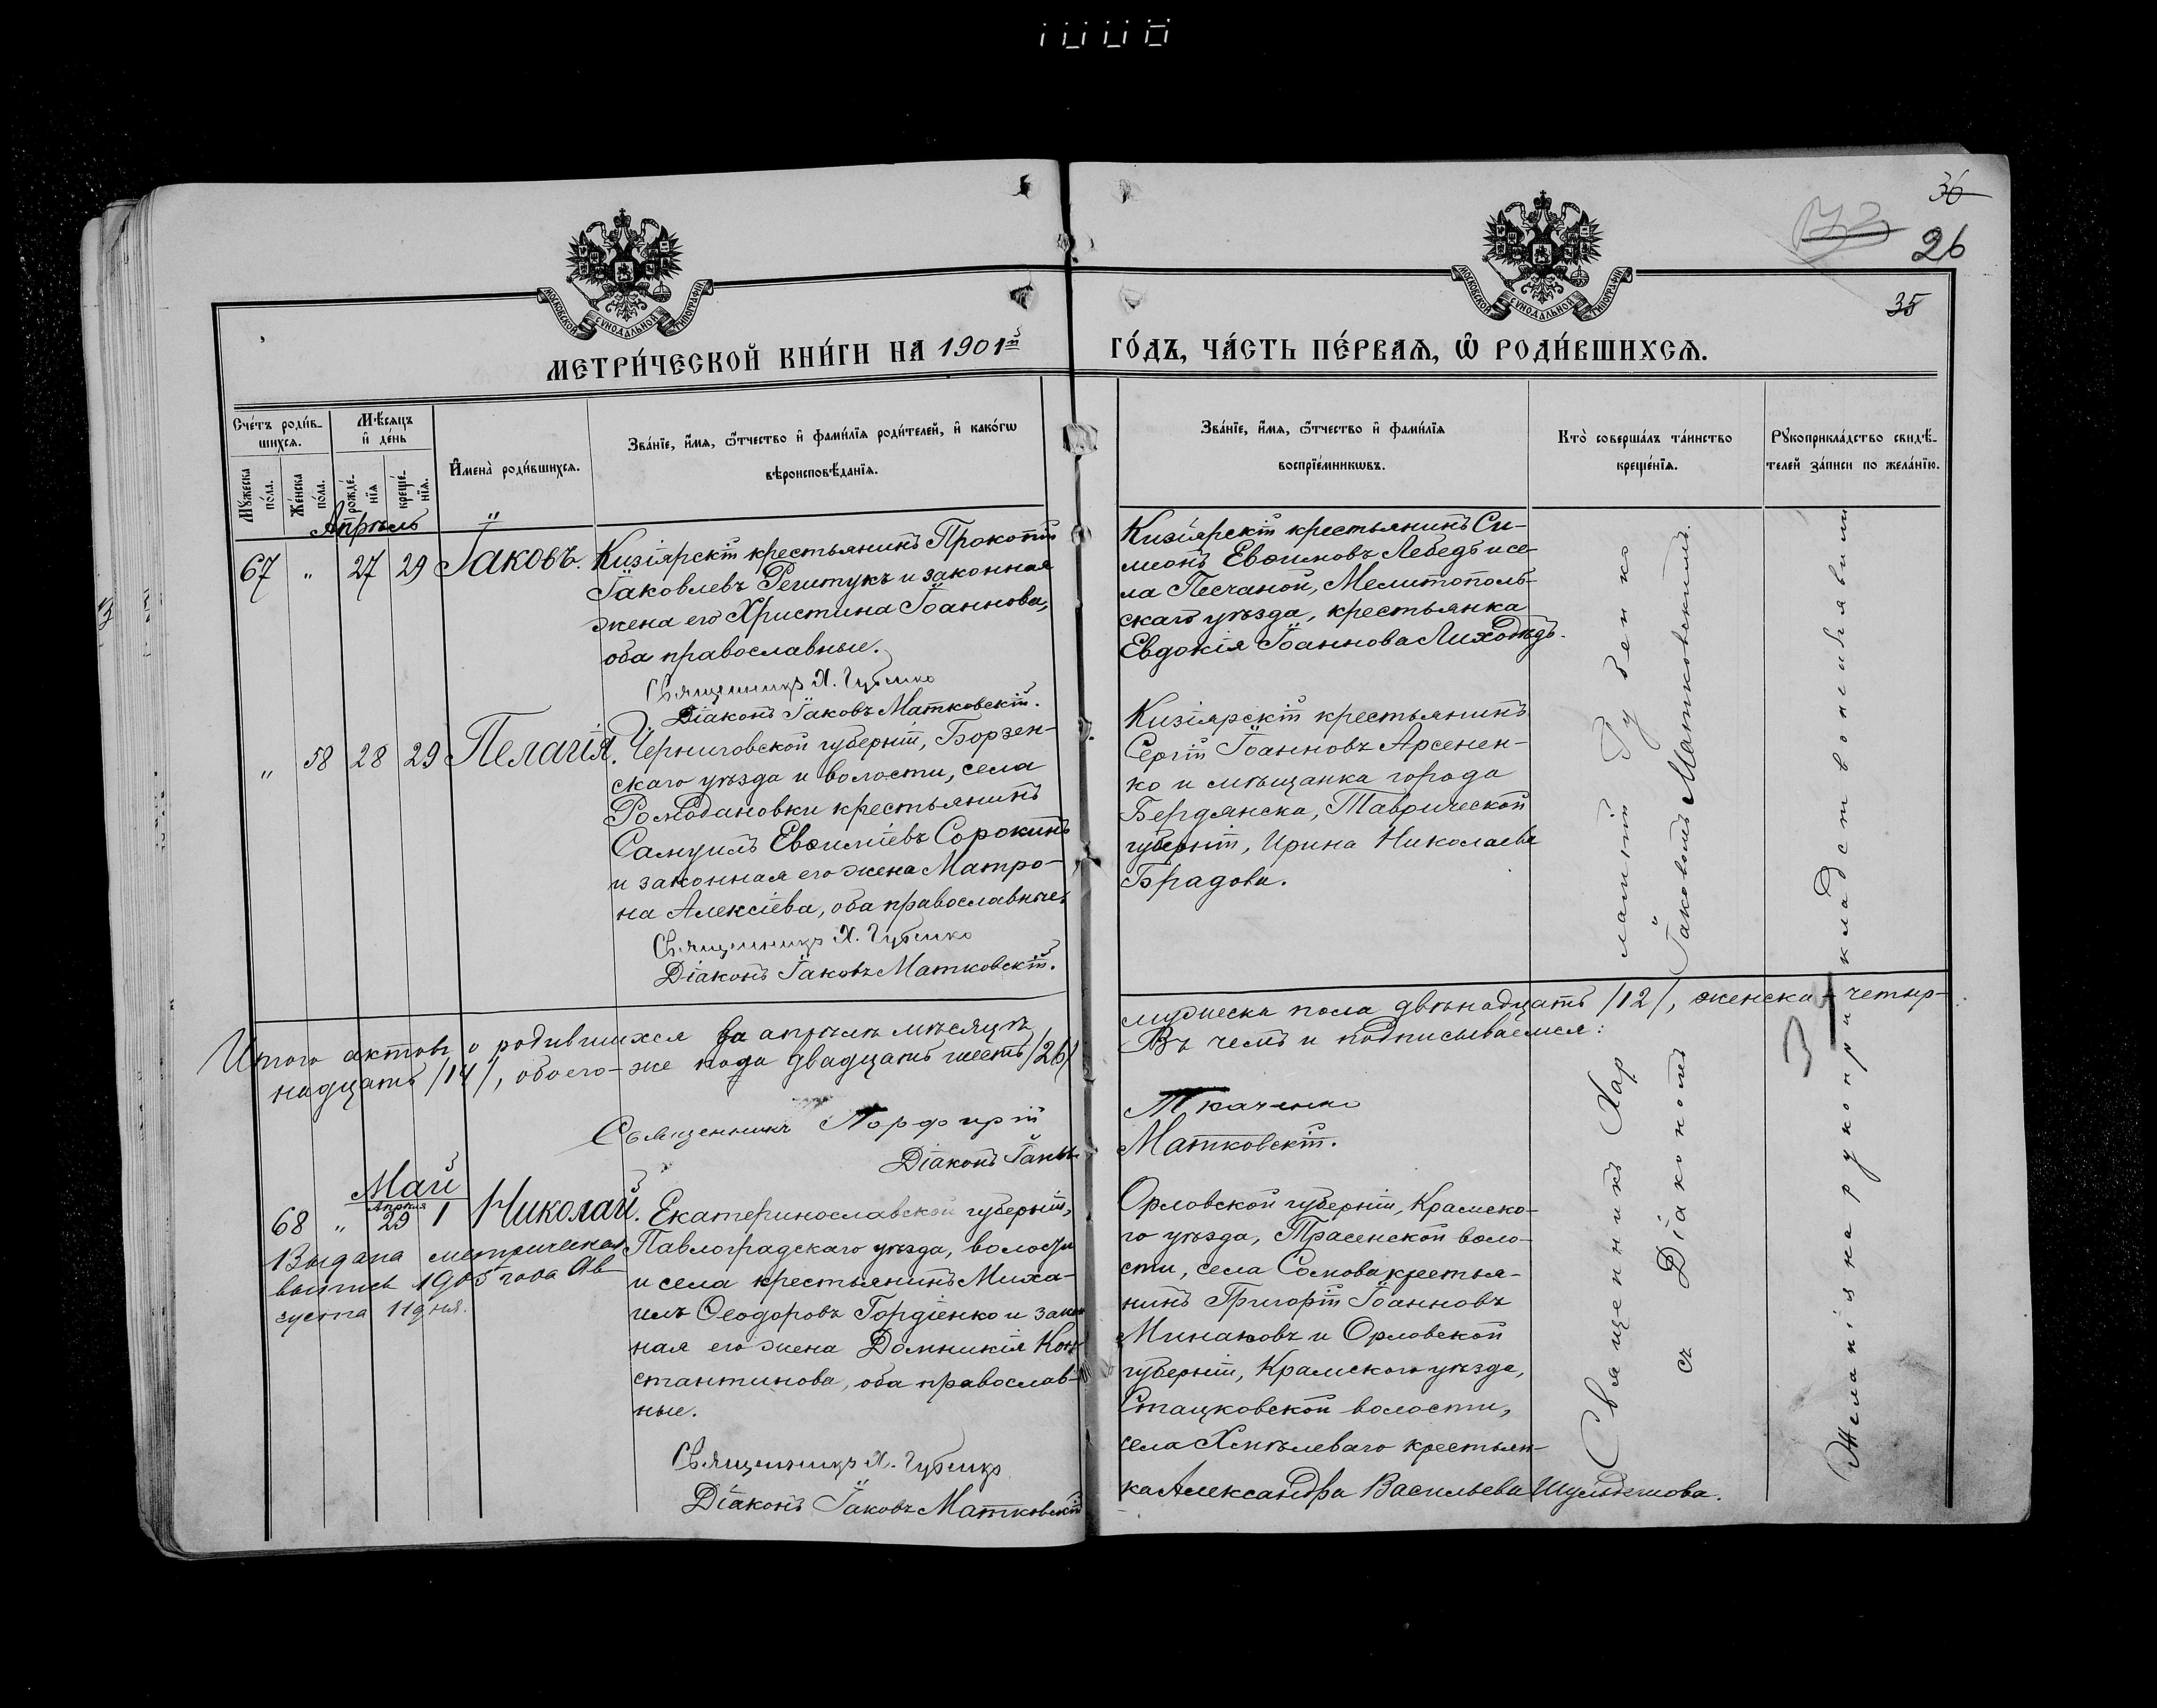 36
26
35
МОСКОВСКОЙ СУНОДАЛЬНОЙ ТИПОГРАФІИ
МОСКОВСКОЙ СУНОДАЛЬНОЙ ТИПОГРАФІИ
МЕТРИ́ЧЕСКОЙ КНИ́ГИ НА 1901й ГО́ДЪ, ЧА́СТЬ ПЕ́РВАЯ, Ѡ РОДИ́ВШИХСЯ.
Сче́тъ роди́в-
шихся.
Мꙋ́жеска по́ла.
Же́нска по́ла.
Мѣ́сяцъ
и де́нь
рожде́-
нїя
креще́-
нїя.
Имена̀ роди́вшихся.
Зва́нїе, и́мя, ѻ́тчество и фами́лїя роди́телей, и како́гѡ
вѣроисповѣ́данїя.
Зва́нїе, и́мя, ѻ́тчество и фами́лїя
воспрїе́мникѡвъ.
Кто̀ соверша́лъ та́инство
креще́нїя.
Рꙋкоприкла́дство свидѣ́-
телей за́писи по жела́нїю.
Апрѣль
67 " 27 29 Іаковъ.
Кизіярскій крестьянинъ Прокопій
Іаковлевъ Решитукъ и законная
жена его Христина Іоаннова,
оба православные.
Священникъ Х. Губенко
Діаконъ Іаковъ Матковскій.
Кизіярскій крестьянинъ Си-
меонъ Евѳимовъ Лебедь и се-
ла Песчаной, Мелитополь-
скаго уѣзда, крестьянка
Евдокія Іоаннова Лиходѣдъ.
" 58 28 29 Пелагія.
Черниговской губерніи, Борзен-
скаго уѣзда и волости, села
Ромодановки крестьянинъ
Самуилъ Евѳиміевъ Сорокинъ
и законная его жена Матро-
на Алексіева, оба православные.
Священникъ Х. Губенко
Діаконъ Іаковъ Матковскій.
Кизіярскій крестьянинъ
Сергій Іоанновъ Арсенен-
ко и мѣщанка города
Бердянска, Таврической
губерніи, Ирина Николаева
Брадова.
Итого актовъ о родившихся за апрѣль мѣсяцъ мужеска пола двѣнадцать /12/, женска - четыр-
надцать /14/, обоего-же пола двадцать шесть /26/ Въ чемъ и подписываемся:
Священникъ Порфирій Ткаченко
Діаконъ Іаковъ Матковскій.
Май
Апрѣля
68 " 29 1 Николай.
Выдана метрическая
выпись 1905 года Ав-
густа 11 дня.
Екатеринославской губерніи,
Павлоградскаго уѣзда, волости
и села крестьянинъ Миха-
илъ Ѳеодоровъ Гордіенко и закон-
ная его жена Домникія Кон-
стантинова, оба православ-
ные.
Священникъ Х. Губенко
Діаконъ Іаковъ Матковскій
Орловской губерніи, Крамско-
го уѣзда, Трасенской воло-
сти, села Сомова крестья-
нинъ Григорій Іоанновъ
Минаковъ и Орловской
губерніи, Крамского уѣзда,
волости,
села Хмѣлеваго крестьян-
ка Александра Васильева
Священникъ Харлампій Губенко
съ Діакономъ Іаковомъ Матковскимъ.
Желанія на рукоприкладство не изъявили